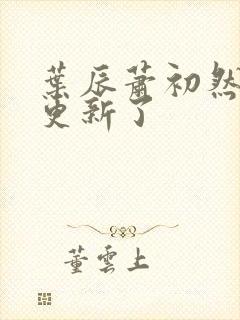 葉辰蕭初然
更新了
董雲上